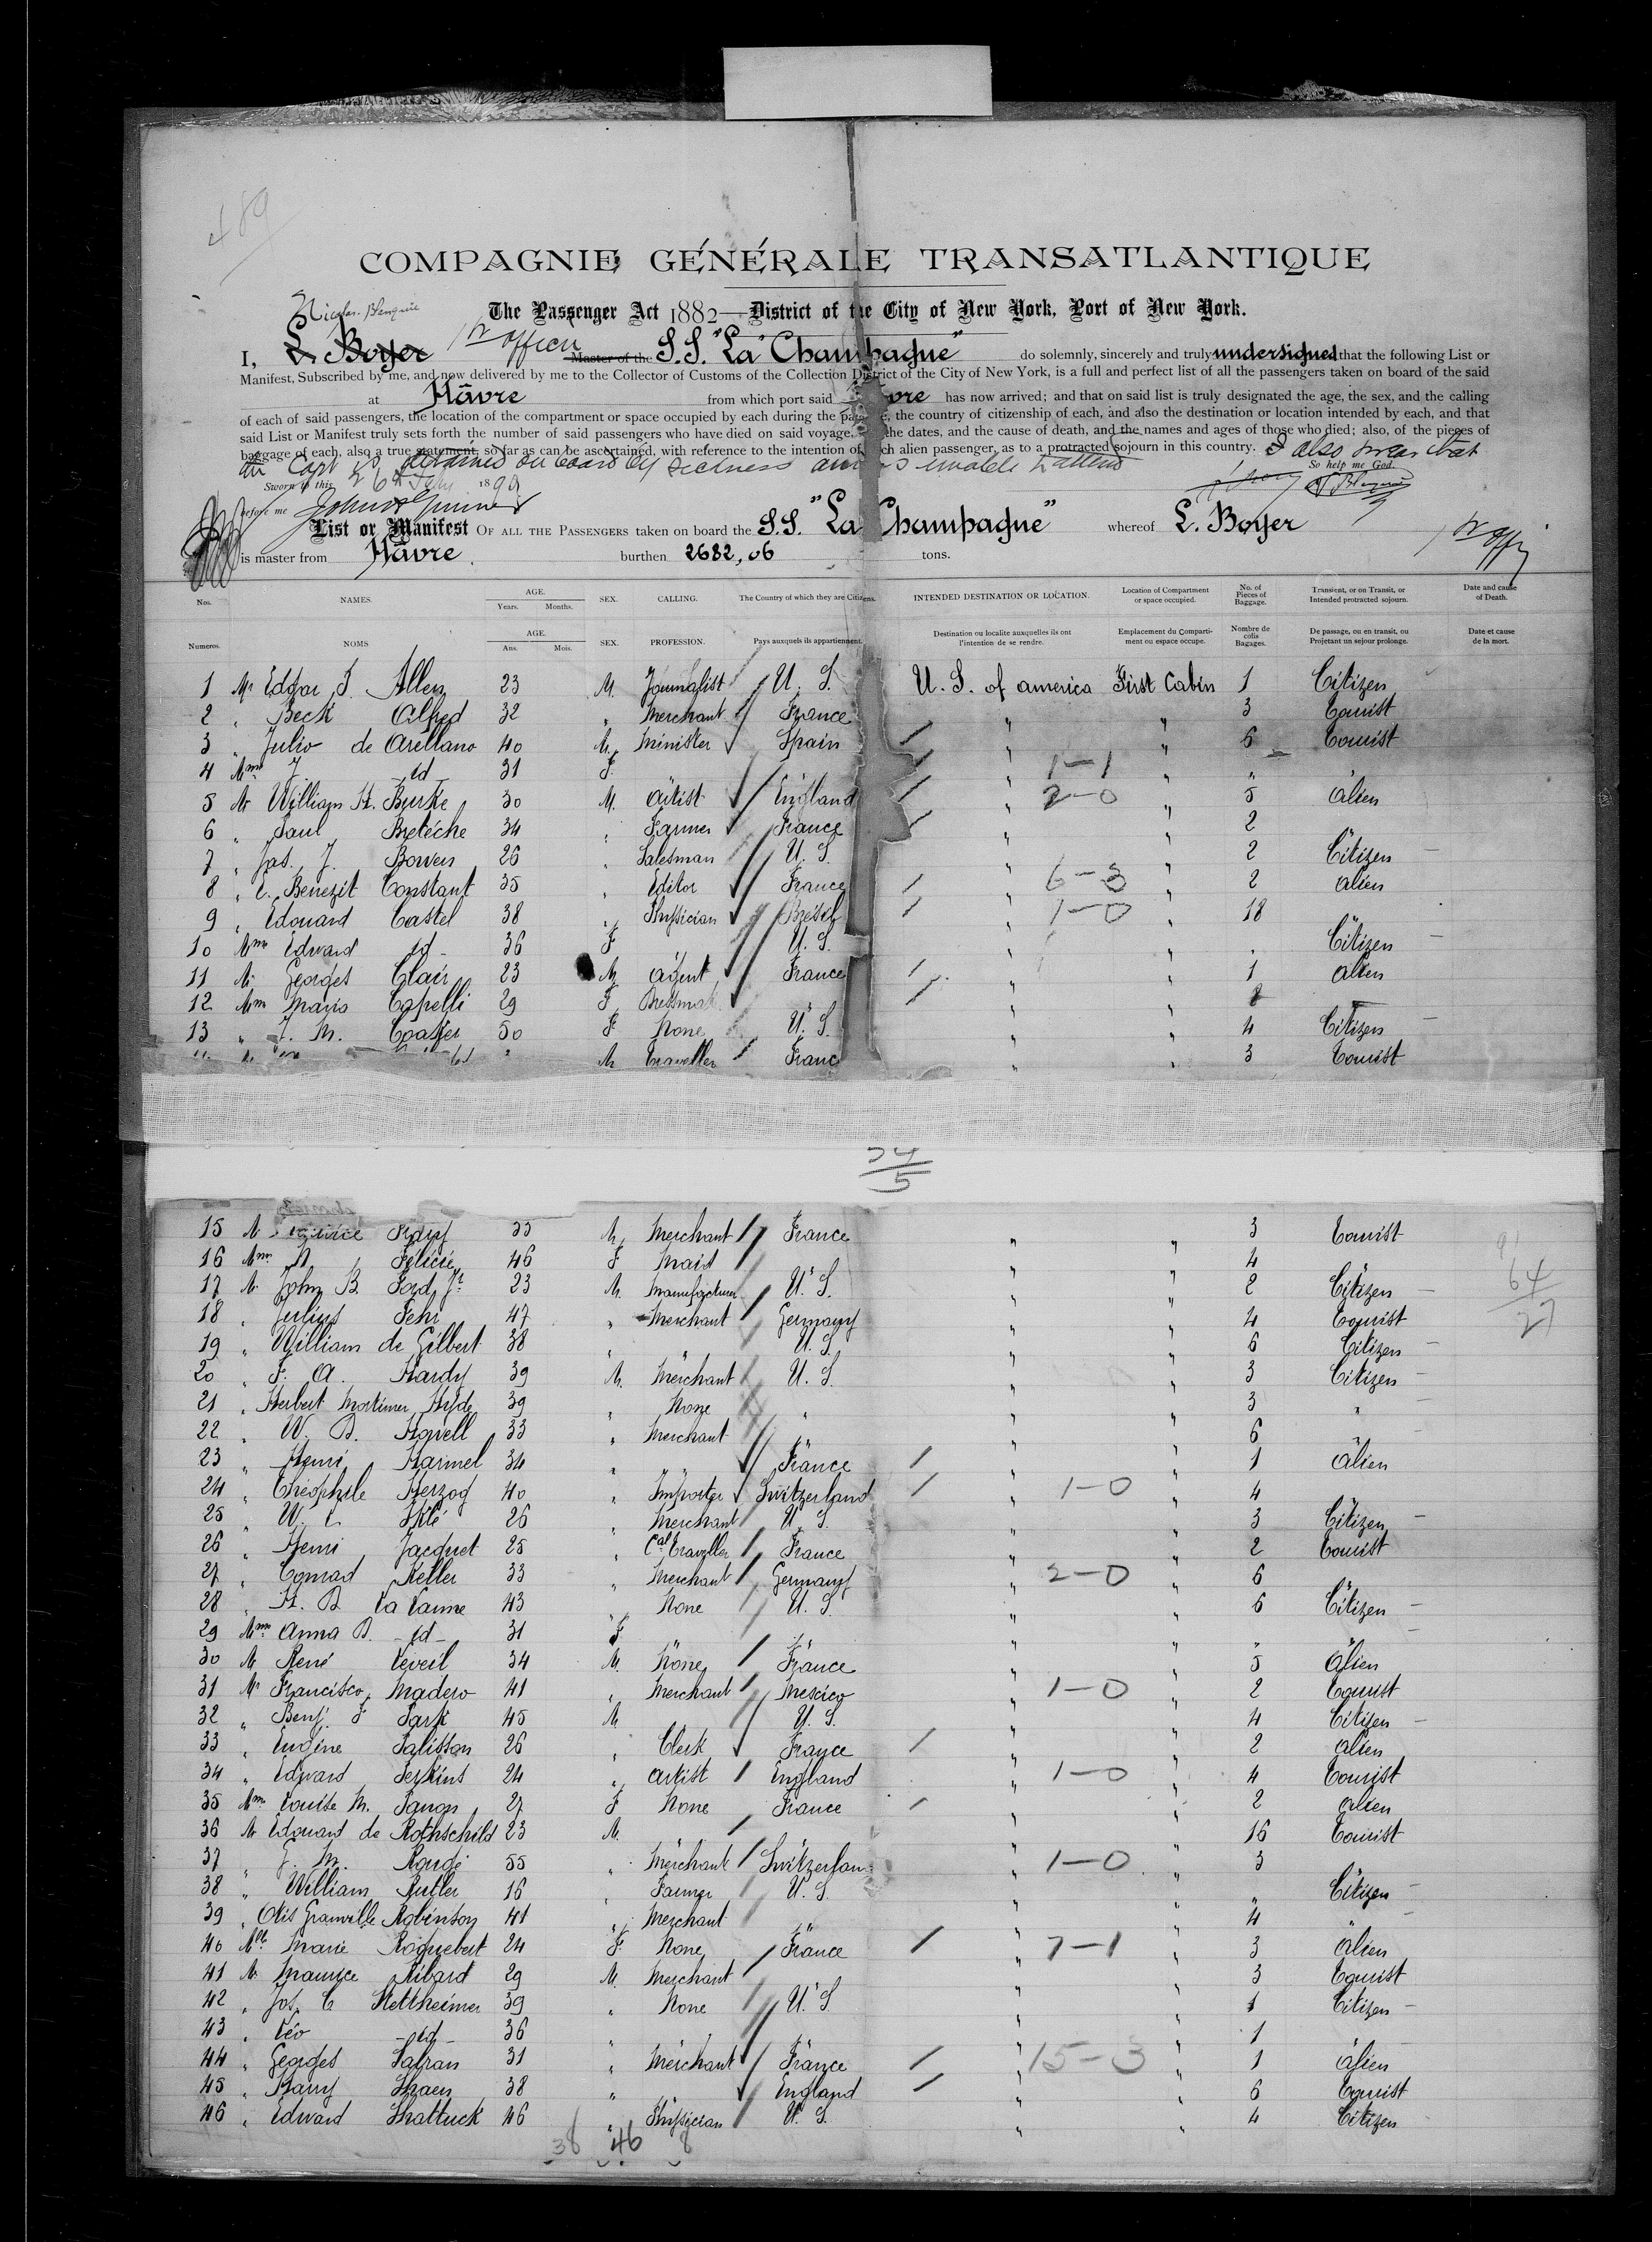 489
COMPAGNIE GÉNÉRALE TRANSATLANTIQUE
The Passenger Act 1882 — District of the City of New York, Port of New York.
I, L. Boyer 1st officer Master of the S.S. "La Champagne" do solemnly, sincerely and truly undersigned that the following List or
Manifest, Subscribed by me, and now delivered by me to the Collector of Customs of the Collection District of the City of New York, is a full and perfect list of all the passengers taken on board of the said
at Hâvre from which port said has now arrived; and that on said list is truly designated the age, the sex, and the calling
of each of said passengers, the location of the compartment or space occupied by each during the the country of citizenship of each, and also the destination or location intended by each, and that
said List or Manifest truly sets forth the number of said passengers who have died on said voyage, the dates, and the cause of death, and the names and ages of those who died; also, of the pieces of
baggage of each, also a true statement, so far as can be ascertained, with reference to the intention of each alien passenger, as to a protracted sojourn in this country. I also swear that
the Capt is detained on board by sickness and is unable to attend So help me God.
Sworn to this 26th July 1899
before me
List or Manifest OF ALL THE PASSENGERS taken on board the S.S. "La Champagne" whereof L. Boyer
is master from Hâvre. burthen 2682,06 tons.
Nos. NAMES. AGE. Years. Months. SEX. CALLING. The Country of which they are Citizens. INTENDED DESTINATION OR LOCATION. Location of Compartment or space occupied. No. of Pieces of Baggage. Transient, or on Transit, or Intended protracted sojourn. Date and cause of Death.
Numeros. NOMS AGE. Ans. Mois. SEX. PROFESSION. Pays auxquels ils appartiennent. Destination ou localite auxquelles ils ont l'intention de se rendre. Emplacement du Compartiment ou espace occupe. Nombre de colis Bagages. De passage, ou en transit, ou Projetant un sejour prolonge. Date et cause de la mort.
1 Mr Edgar J. Allen 23 M. Journalist U. S. U. S. of america First Cabin 1 Citizen
2 " Beck Alfred 32 " Merchant France " " 3 Tourist
3 " Julio de Arellano 40 M. Minister Spain " " 6 Tourist
4 Mme J. -id- 31 F. 1-1 " "
5 Mr William H. Burke 30 M. artist England 2-0 " 5 alien
6 " Paul Bretéche 34 " Farmer France " " 2 "
7 " Jas. J. Bowen 26 " Salesman U. S. " " 2 Citizen
8 " E. Benezit Constant 35 " Editor France 6-3 " 2 alien
9 " Edouard Castel 38 " Physician Brésil 1-0 " 18 "
10 Mme Edward id- 36 F U. S. " " " Citizen
11 M. Georges Clair 23 M agent France " " 1 alien
12 Mme Maria Capelli 29 F " " "
13 " J. M. Coaker 50 F None U. S. " " 4 Citizen
M Traveller Franc " " 3 Tourist
24/5
15 M. 33 M Merchant France " " 3 Tourist
16 Mme Félicie 46 F Maid " " " 4 "
17 M. John B. Ford Jr 23 M. Manufacturer U. S. " " 2 Citizen
18 " Julius Fehr 47 " Merchant Germany " " 4 Tourist
19 " William de Gilbert 38 " " U. S. " " 6 Citizen
20 " F. A. Hardy 39 M. Merchant U. S. " " 3 Citizen
21 " Herbert Mortimer Hyde 39 " None " " " 3 "
22 " W. D. Howell 33 " Merchant " " " 6 "
23 " Henri Harmel 34 " " France " " 1 alien
24 " Théophile Herzog 40 " Importer Switzerland 1-0 " 4 "
25 " W. C. Iklé 26 " Merchant U. S. " " 3 Citizen
26 " Henri Jacquet 25 " Cal Traveller France " " 2 Tourist
27 " Conrad Keller 33 " Merchant Germany 2-0 " 6 "
28 " H. B. La Vanne 43 " None U. S. " " 6 Citizen
29 Mme Anna B. -id- 31 F " " " " "
30 M René Leveil 34 M. None France " " 5 alien
31 Mr Francisco Madero 41 " Merchant Mexico 1-0 " 2 Tourist
32 " Benj. F Park 45 M " U. S. " " 4 Citizen
33 " Eugène Palisson 26 " Clerk France " " 2 alien
34 " Edward Perkins 24 " artist England 1-0 " 4 Tourist
35 Mme Louise M. Panon 27 F None France " " 2 alien
36 M Edouard de Rothschild 23 M. " " " " 16 Tourist
37 " J. M. Roudi 55 " Merchant Switzerlan 1-0 " 3 "
38 " William Rutler 16 " Farmer U. S. " " " Citizen
39 " Otis Granville Robinson 41 " Merchant " " " 4 "
40 Mlle Marie Roquebert 24 F None France 7-1 " 3 alien
41 M. Maurice Ribard 29 M. Merchant " " " 3 Tourist
42 " Jos. C Stettheimer 39 " None U. S. " " 1 Citizen
43 " Léo -id- 36 " " " " 1 "
44 " Georges Safran 31 " Merchant France 15-3 " 1 alien
45 " Harry Shaen 38 " " England " " 6 Tourist
46 " Edward Shattuck 46 " Physician U. S. " " 4 Citizen
38 46 8
64
27